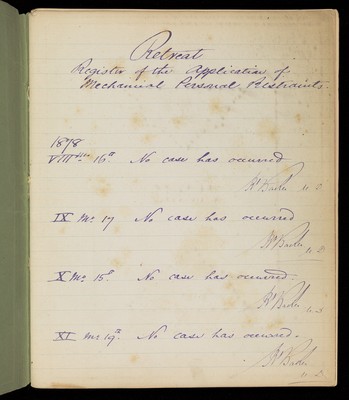 Retreat
Register of the Application of
Mechanical Personal Restraints.
1878
VIII Mo 16th No case has occurred
Rt Baker M.D
IX Mo 17 No case has occurred
Rt Baker M.D
X Mo 15th No case has occurred
Rt Baker M.D
XI Mo 19th No case has occurred.
Rt Baker M.D.